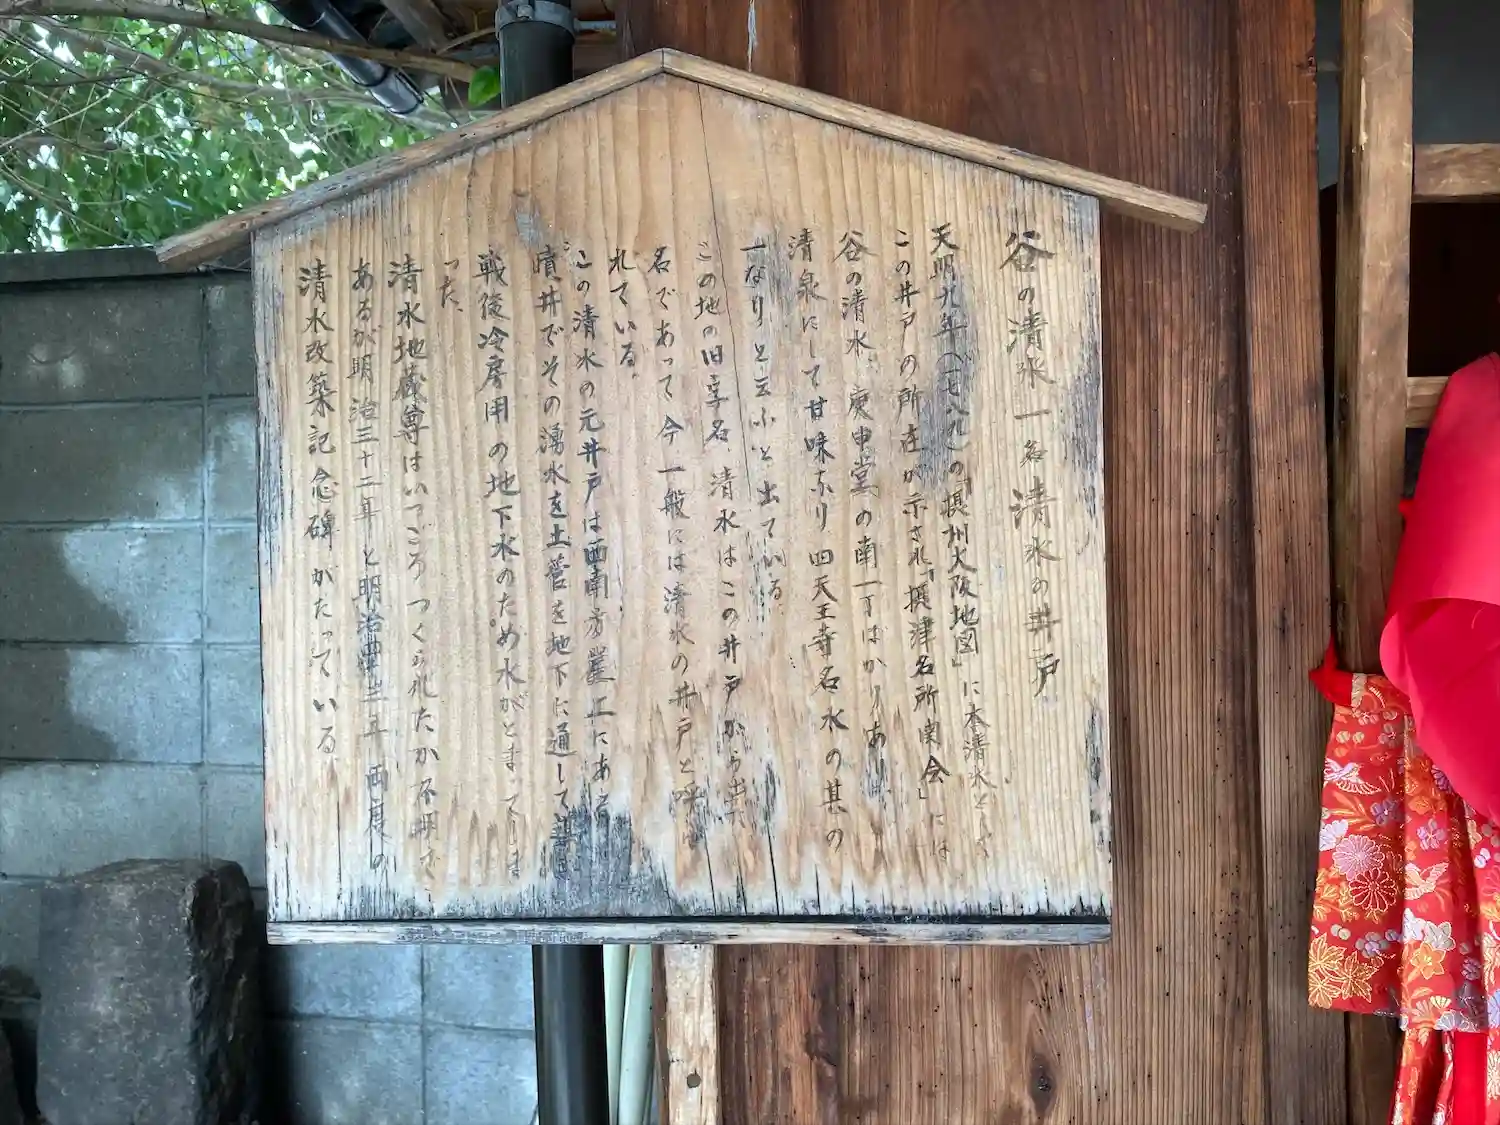 谷の清水 一名 清水の井戸
天明九年(一七八九)の「摂州大阪地図」に本清水として
この井戸の所在が示され「摂津名所図会」には
谷の清水 庚申堂の南一丁ばかりあり
清泉にして甘味なり 四天王寺名水の其の
一なり と云ふと出ている。
この地の旧字名 清水はこの井戸から
名であって今 一般には清水の井戸と呼ば
れている。
この清水の元井戸は西南方崖上にある
噴井でその湧水を土管を地下に通して
戦後冷房用の地下水のため水がとまってしま
った。
清水地蔵尊はいつごろ つくられたか不明で
あるが明治三十二年と明治四十三年 両度の
清水改築記念碑がたっている。